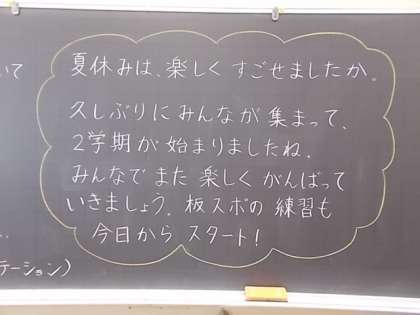 いて
夏休みは、楽しくすごせましたか。
久しぶりにみんなが集まって、
2学期が始まりましたね。
みんなでまた楽しくがんばって
いきましょう。板スポの練習も
今日からスタート!
テーション)